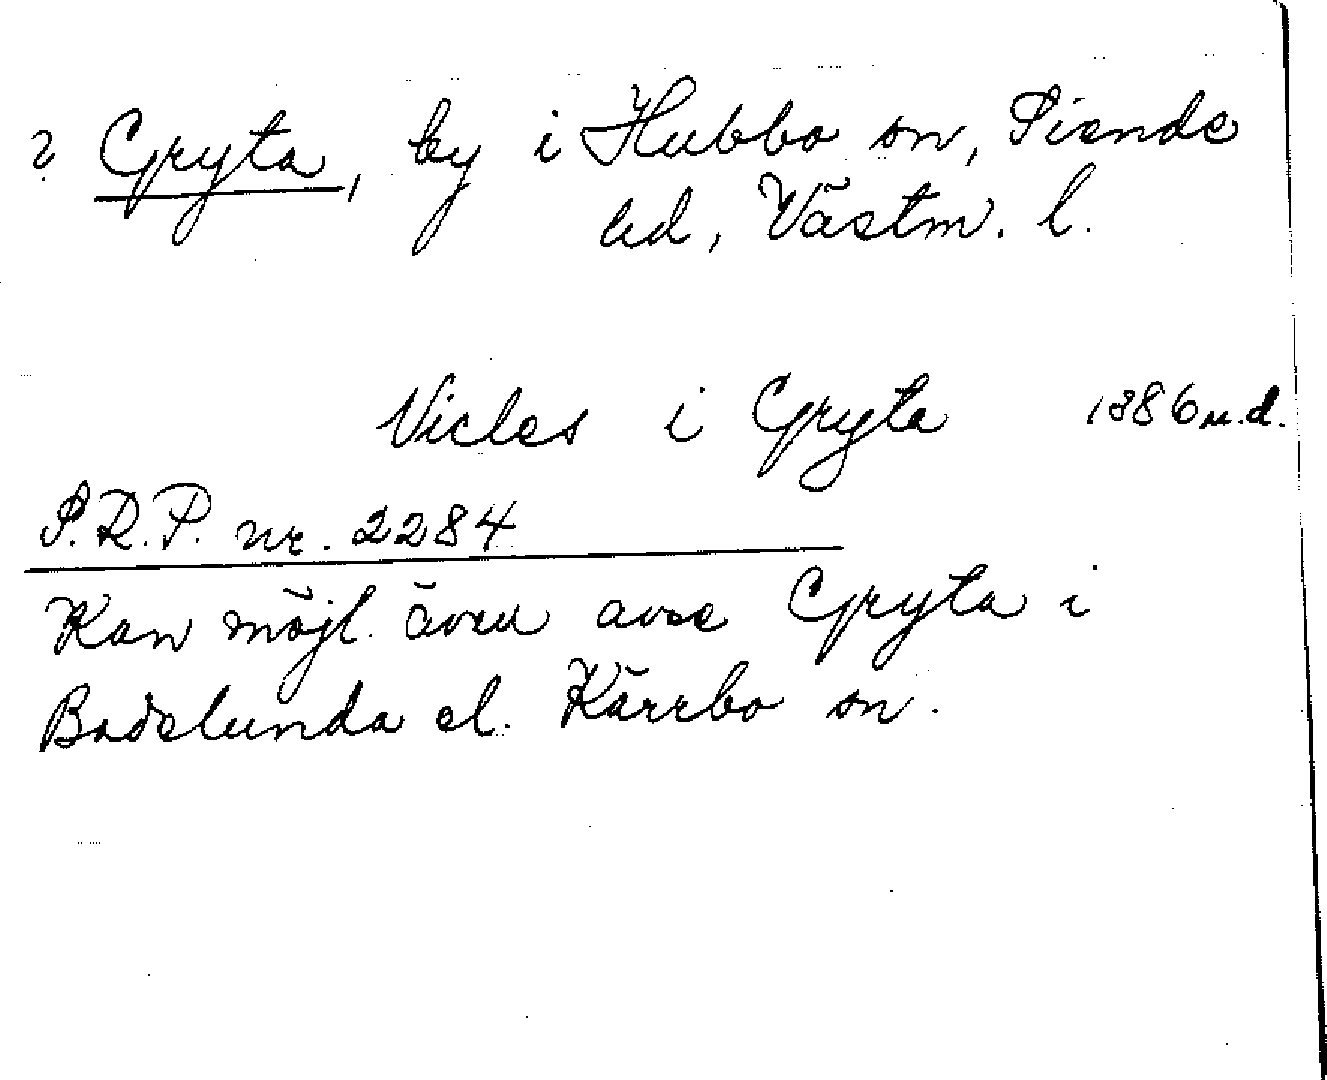 ? Gryta, by i Hubbo sn, Siende
hd, Västm. l.
Niclas i Gryta 1386 u.d.
S.R.P. nr. 2284
Kan möjl. även avse Gryta i
Badelunda el. Kärrbo sn.